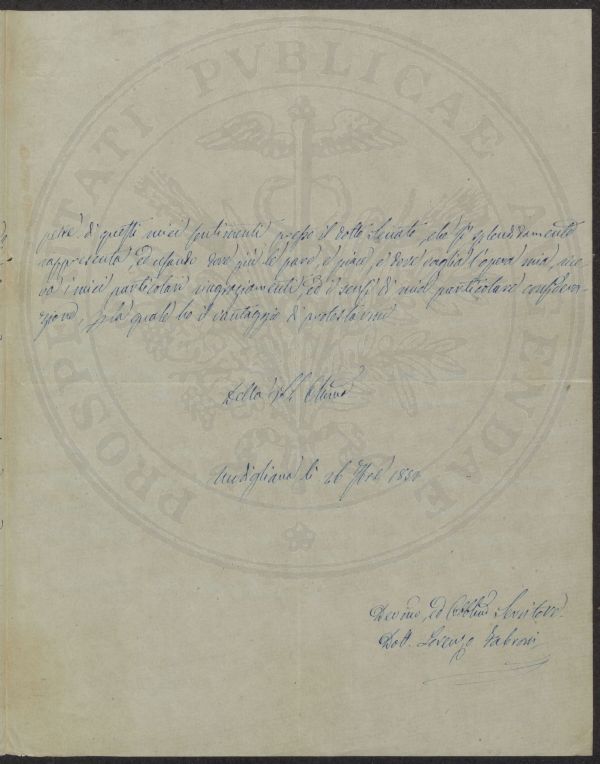 PROSPERITATI PVBLICAE AVGENDAE
di questi miei sentimenti presso il dotto Senato, che sì splendidamente
rappresenta, ed usando dove più le pare, e piace, e dove vaglia l'opera mia,
i miei particolari ringraziamenti, ed i sensi di mia particolare considera-
zione, quale ho il vantaggio di protestarmi
Della
Modigliana li 26
Devmo, ed Obblmo Servitore
Dott. Lorenzo Fabroni